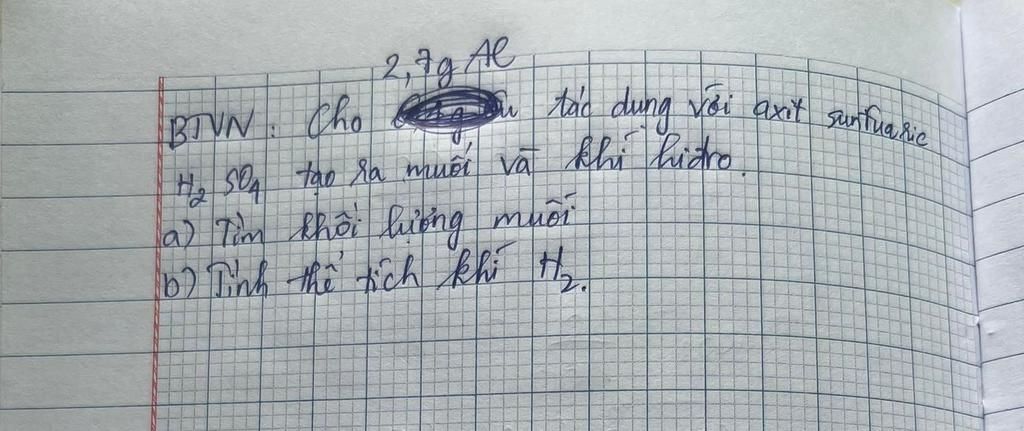 2,7g Al
BTVN: Cho tác dung với axit sunfuaric
H2 SO4 tạo ra muối và khí hidro.
a) Tìm khối lượng muối
b) Tính thể tích khí H2.